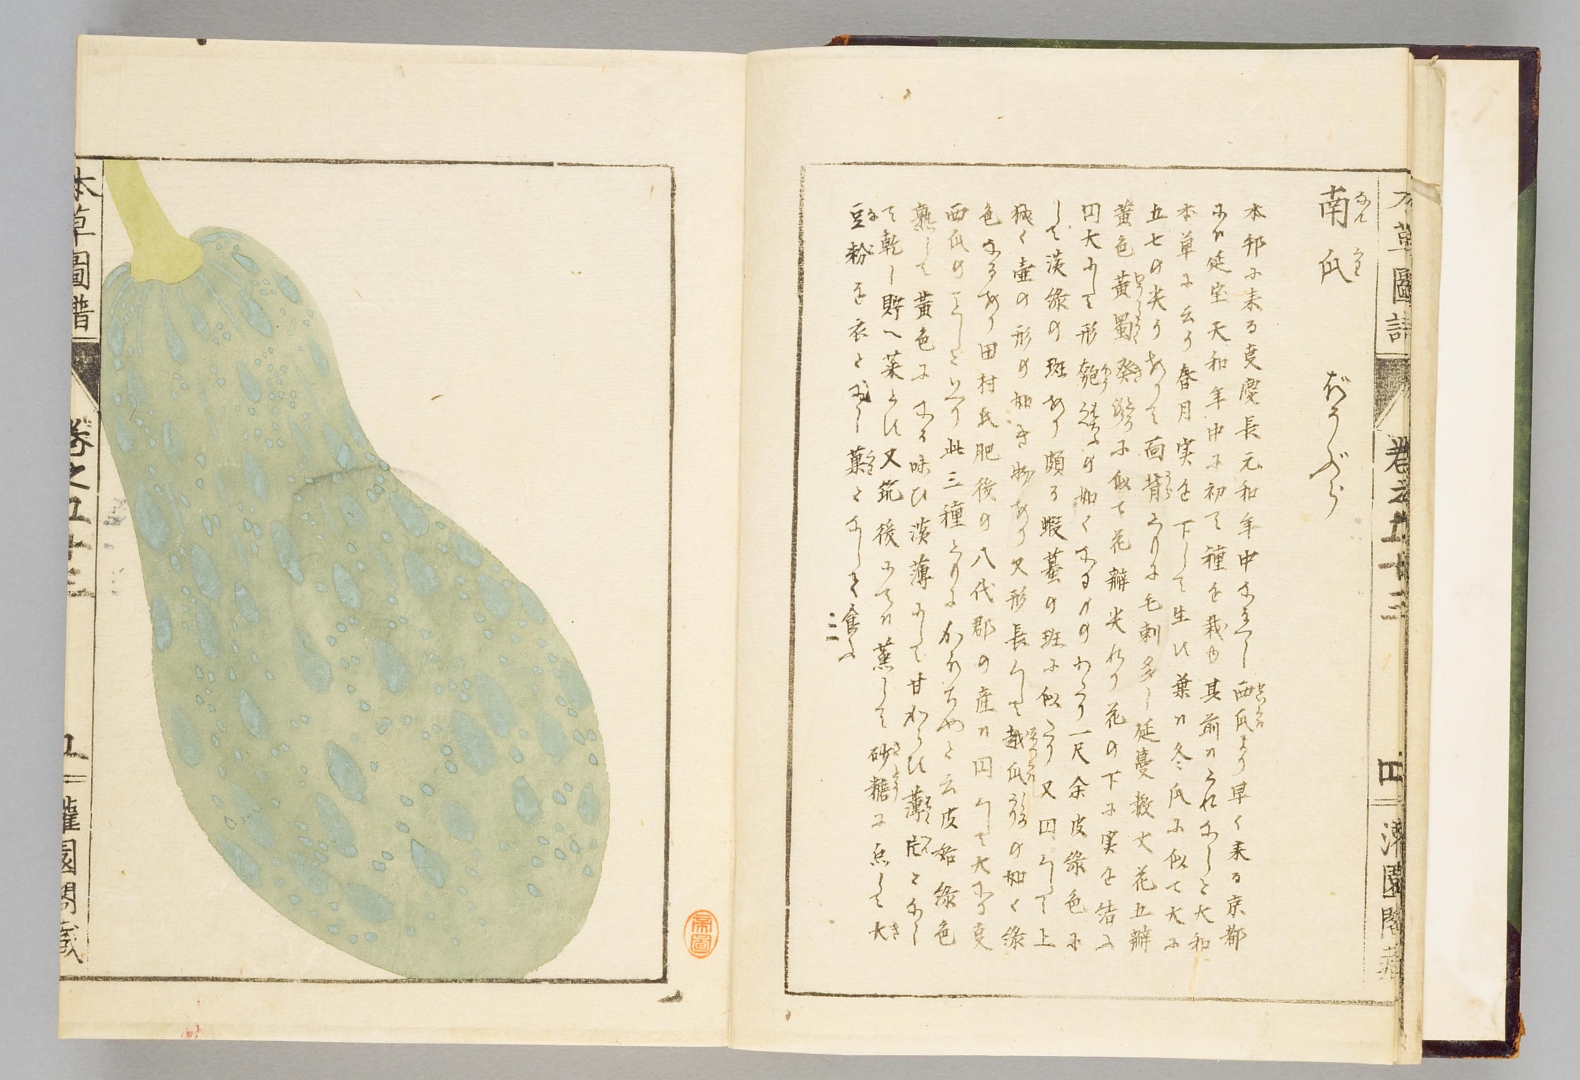 本草圖譜 巻之五十三 四 灌園閣蔵
南瓜 ぼうぶら
本邦に来る事慶長元和年中なるべし西瓜より早く来る京都
にハ延宝天和年中に初て種を栽ゆ其前ハこれなしと大和
本草に云り春月実を下して生ひ葉ハ冬瓜に似て大に
五七の尖りありて面背ともに毛刺多し延蔓数丈花五瓣
黄色黄蜀葵に似て花瓣尖れり花の下に実を結ふ
円大にして形匏の如くなるものあり一尺余皮緑色に
して淡緑の斑あり頗る蝦蟇の斑に似たり又円くして上
狭く壷の形の如き物あり又形長くして越瓜の如く緑
色なるあり田村氏肥後の八代郡の産ハ円くして大なる事
西瓜のごとしといへり此三種ともにかぼちやと云皮始緑色
熟して黄色になる味ひ淡薄にして甘からず薄片となし
て乾し貯へ菜とす又筑後にてハ蒸して砂糖に点して大
豆粉を衣となし菓となして食ふ
本草圖譜 巻之五十三 五 灌園閣蔵
帝圖